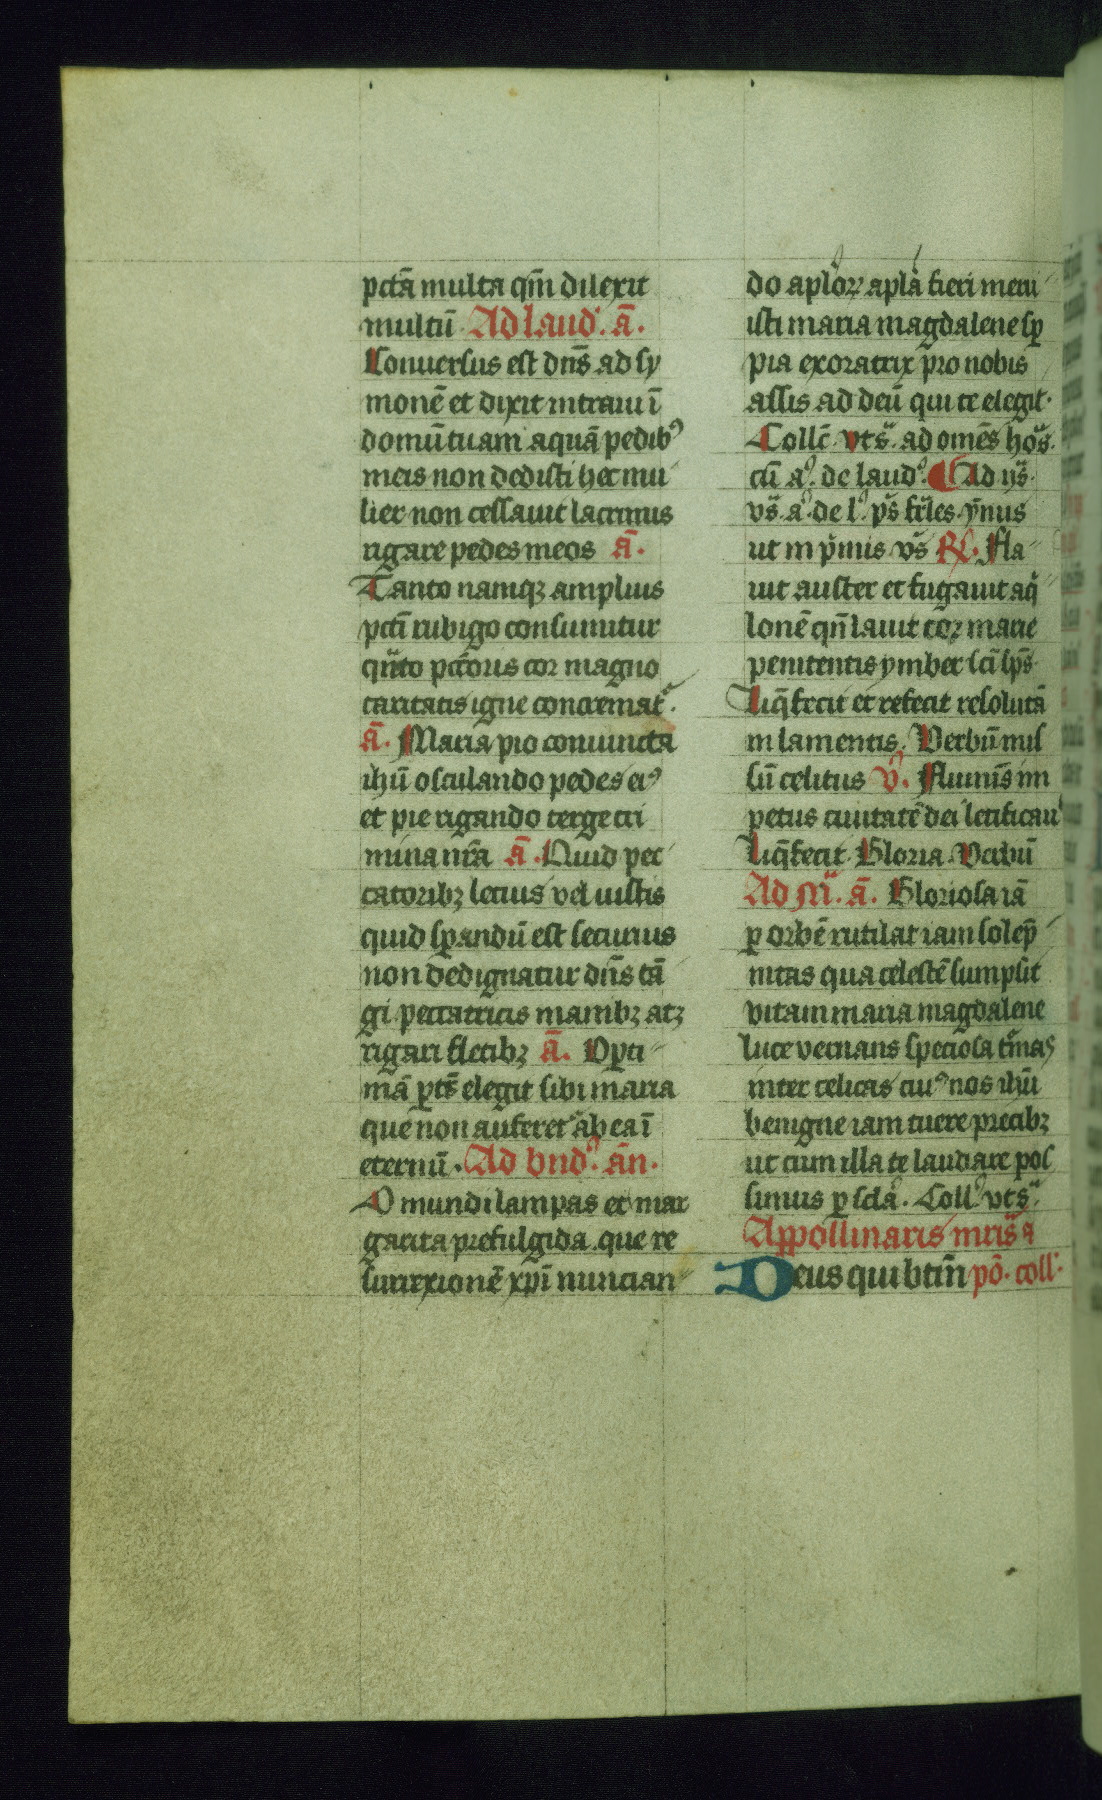 pctā multa qm̄ dilexit
multū Ad laud'. ā.
Conuersus est dn̄s ad sy
monē et dixit intraui ī
domū tuam aquā pedibꝰ
meis non dedisti hec mu
lier non cessauit lacrimis
rigare pedes meos ā.
Tanto namqꝫ amplius
pctī rubigo consumitur
qn̄to pctōris cor magno
caritatis igne concremat᷑.
ā. Maria pio coniuncta
ihū osculando pedes eiꝰ
et pie rigando terge cri
mina nr̄a ā. Quid pec
catoribꝫ letius vel iustis
quid sꝑandū est securius
non dedignatur dn̄s tā
gi peccatricis manibꝫ atqꝫ
rigari fletibꝫ ā. Opti
mā ꝑtē elegit sibi maria
que non auferet᷑ ab ea ī
eternū. Ad bn̄dꝰ. ān.
O mundi lampas et mar
garita prefulgida que re
surrexionē xpī nuncian
do aplōꝝ apla fieri meru
isti maria magdalene sꝑ
pia exoratrix pro nobis
assis ad deū qui te elegit.
Collc̄. vts᷑. ad omēs hos᷑.
cū aꝰ. de laudꝰ. Ad ijs᷑
vs᷑. aꝰ de lꝰ. ps̄ fr̄les ȳnus
ut in pimis vs̄ ℟. Fla
uit auster et fugauit aq
lonē qn̄ lauit cor marie
penitentis ymber scī sps̄
Liq̄fecit et refecit resolutā
in lamentis. Verbū mis
sū celitus v̓. Fluminis im
petus ciuitatē dei letificau
Liq̄fecit. Gloria. Verbū
Ad M᷑. ā. Gloriosa iā
ꝑ orbē rutilat iam solep̄
nitas qua celestē sumpsit
vitam maria magdalene
luce vernans speciosa t᷑mas
inter celicas ciuꝰ nos ihū
benigne iam tuere precibꝫ
ut cum illa te laudare pos
simus ꝑ scla. Collꝰ vts᷑.
Appollinaris mr̄is ꝗ
Deus qui btm̄ pō. coll'